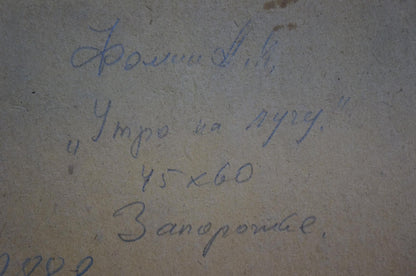 Фомин А.Я.
„Утро на лугу."
45х60
Запорожье.